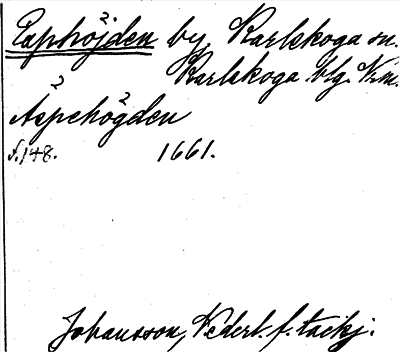 Asphöjden by, Karlskoga sn.
Karlskoga blg. Vrm.
2 2
Aspehögden
f. 148. 1661.
Johansson, Vedert. f. täckj.